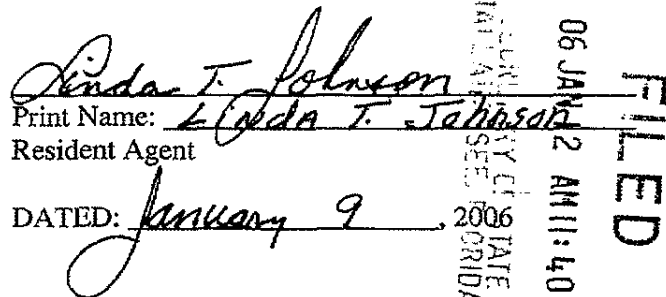 Linda T. Johnson
Print Name: LindA T. Johnson
Resident Agent
DATED: January 9, 2006
FILED
06 JAN 12 AM 11:40
STATE
FLORIDA